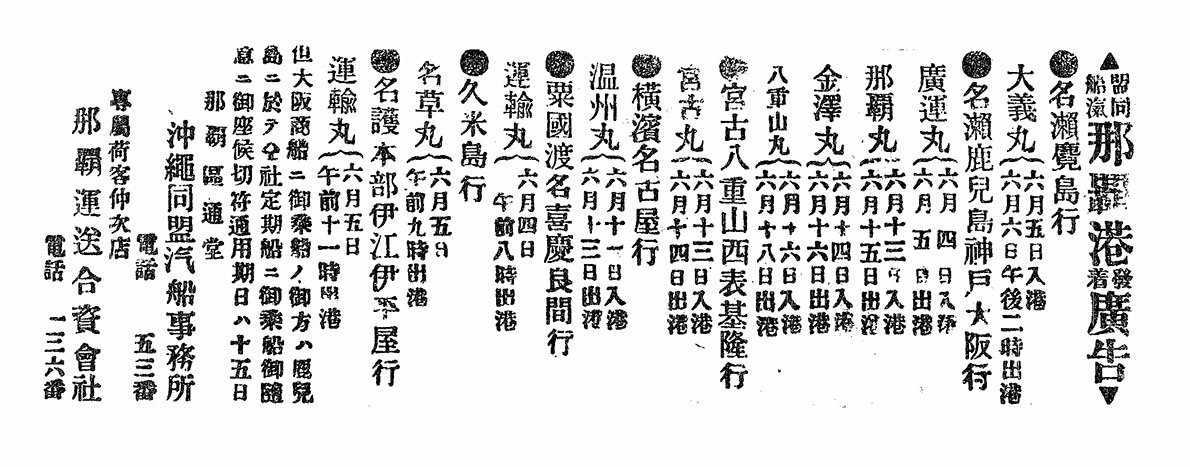 ▲同盟汽船那覇港発着廣告▼
●名瀬鹿島行
大義丸{六月五日入港
六月六日午後二時出港
●名瀬鹿兒島神戸大阪行
廣運丸{六月四日入港
六月五日出港
那覇丸{六月十三日入港
六月十五日出港
金澤丸{六月十四日入港
六月十六日出港
八重山丸{六月十六日入港
六月十八日出港
●宮古八重山西表基隆行
宮古丸{六月十三日入港
六月十四日出港
●横濱名古屋行
温州丸{六月十一日入港
六月十三日出港
●粟國渡名喜慶良間行
運輸丸{六月四日
午前八時出港
●久米島行
名草丸{六月五日
午前九時出港
●名護本部伊江伊平屋行
運輸丸{六月五日
午前十一時出港
但大阪商船ニ御乗船ノ御方ハ鹿兒
島ニ於テ仝社定期船ニ御乗船御隨
意ニ御座候切符通用期日ハ十五日
那覇區通堂
沖繩同盟汽船事務所
電話 五三番
專屬荷客仲次店
那覇運送合資會社
電話 一三六番